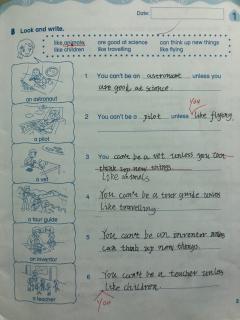 Date:
1
B Look and write.
like animals are good at science can think up new things
like children like travelling like flying
an astronaut
a pilot
a vet
a tour guide
an inventor
a teacher
1 You can't be an astronaut unless you
are good at science.
You
2 You can't be a pilot unless like flying
3 You can't be a vet unless you can
think up new things
like animals
4 You can't be a tour guide unless
like travelling.
5 You can't be an inventor
can think up new things.
6 You can't be a teacher unless
like children.
You
2